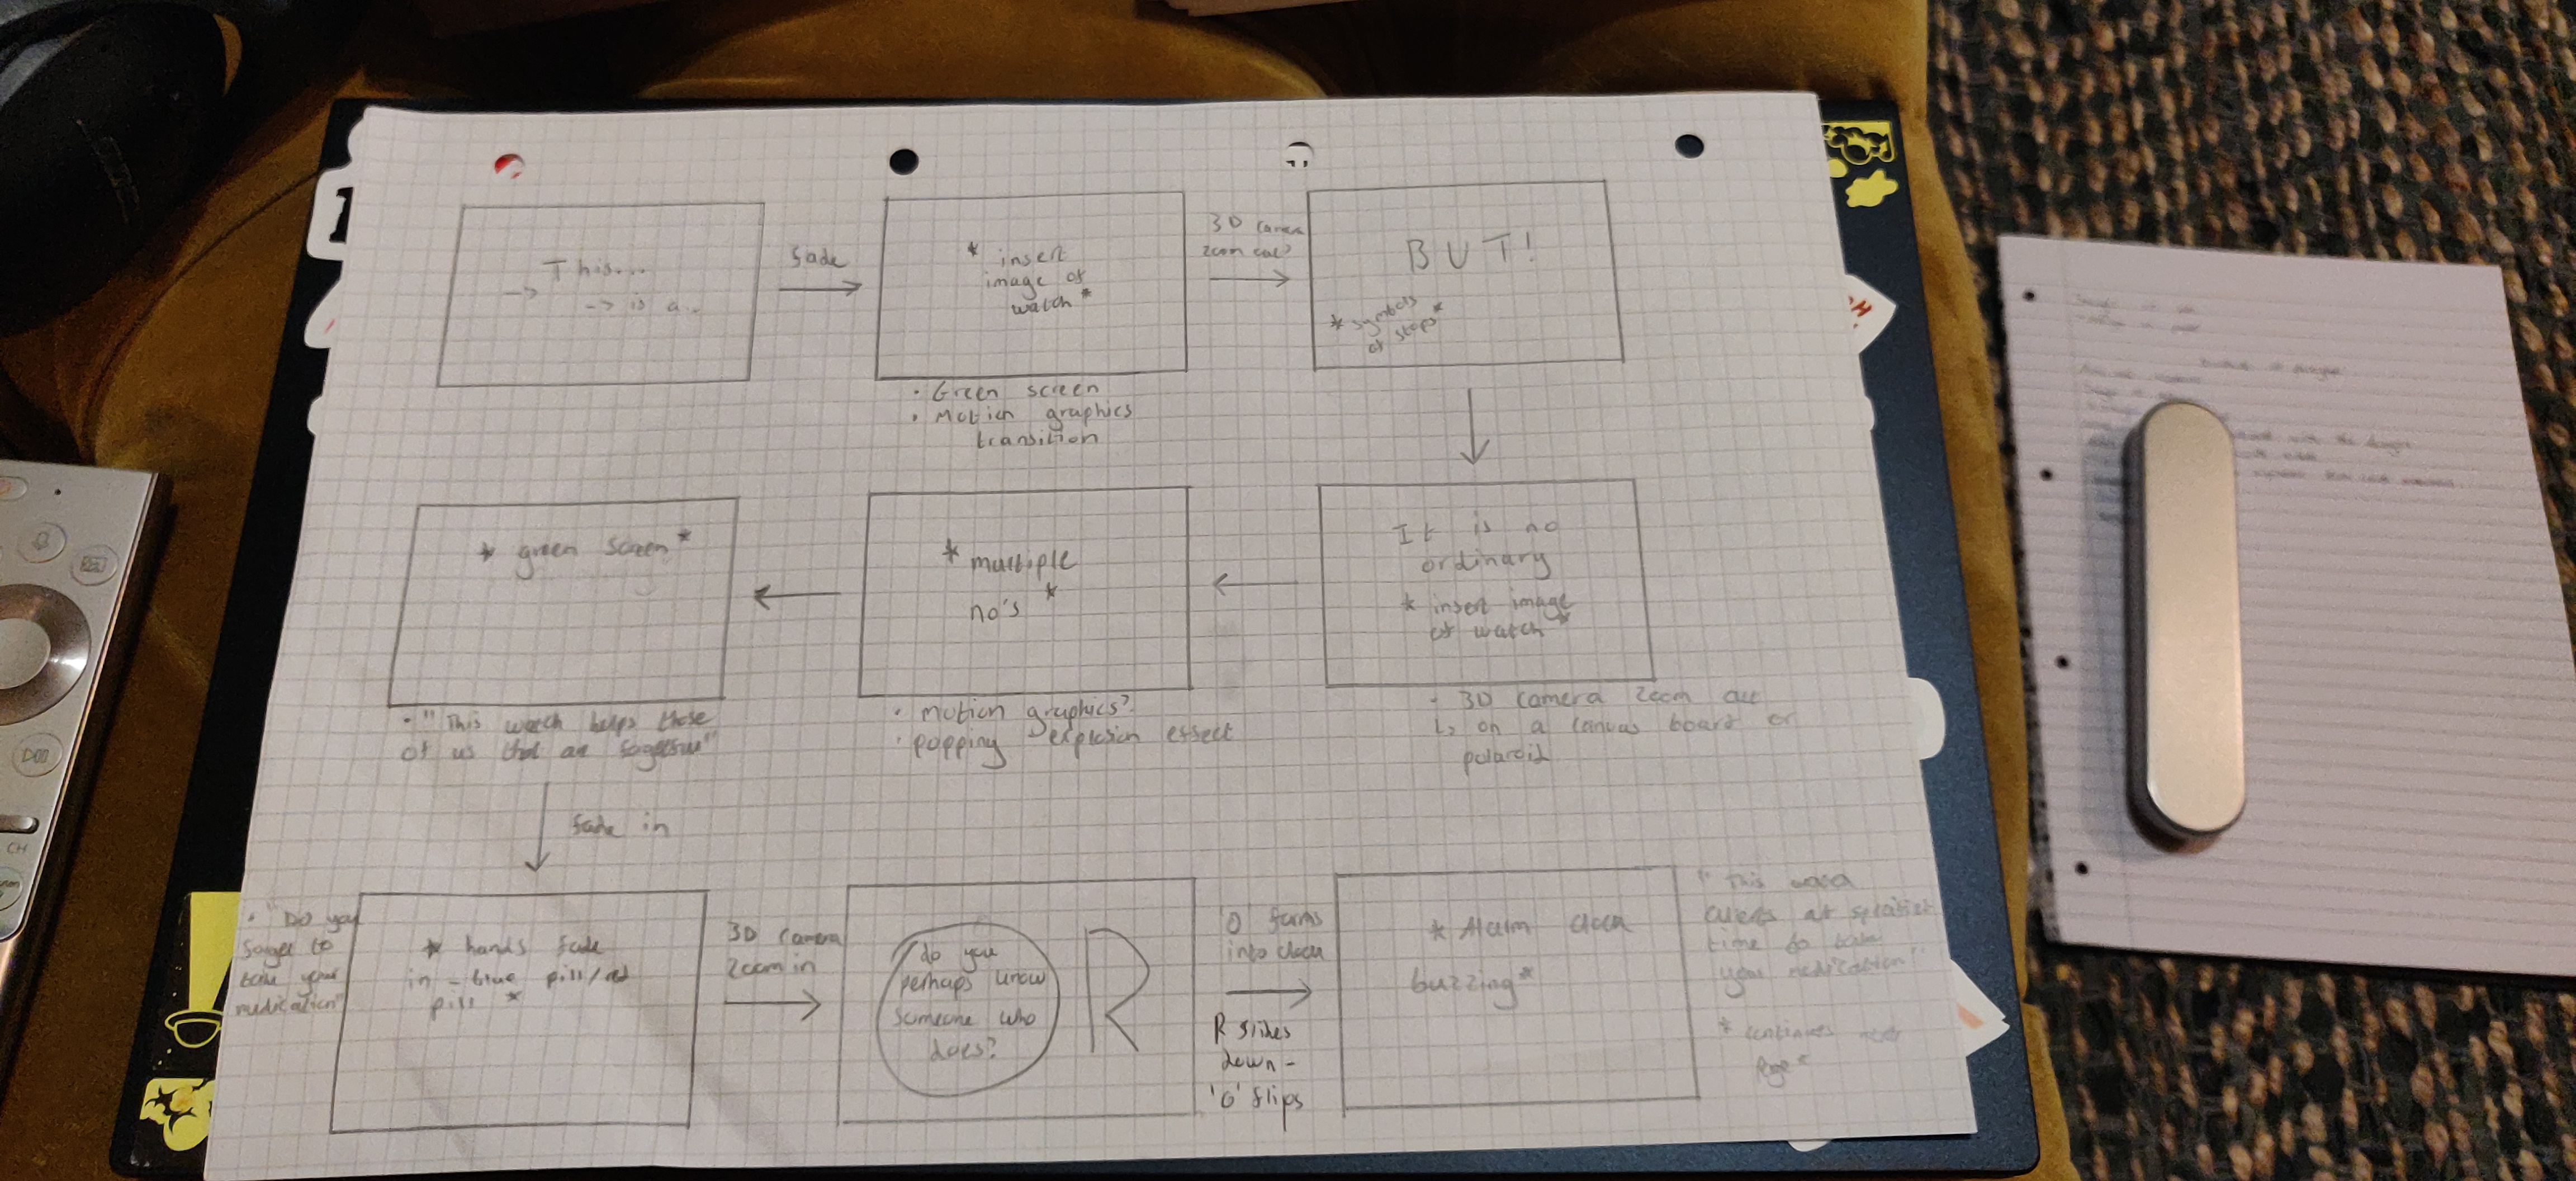 This...
-> -> is a..
fade
* insert
image of
watch *
• Green screen
• Motion graphics
transition
3D camera
zoom out?
BUT!
* symbols
of stops *
It is no
ordinary
* insert image
of watch *
- 3D camera zoom out
↳ on a canvas board or
polaroid
* multiple
no's *
• Motion graphics?
• popping explosion effect
* green screen *
• "This watch helps those
of us that are forgetful"
fade in
• "Do you
forget to
take your
medication"
* hands fade
in - blue pill/red
pill *
3D camera
zoom in
do you
perhaps know
someone who
does?
R
'O' forms
into clock
R slides
down -
'O' flips
* Alarm clock
buzzing *
" This watch
alerts at specified
time to take
your medication"
* continues next
page *
CH